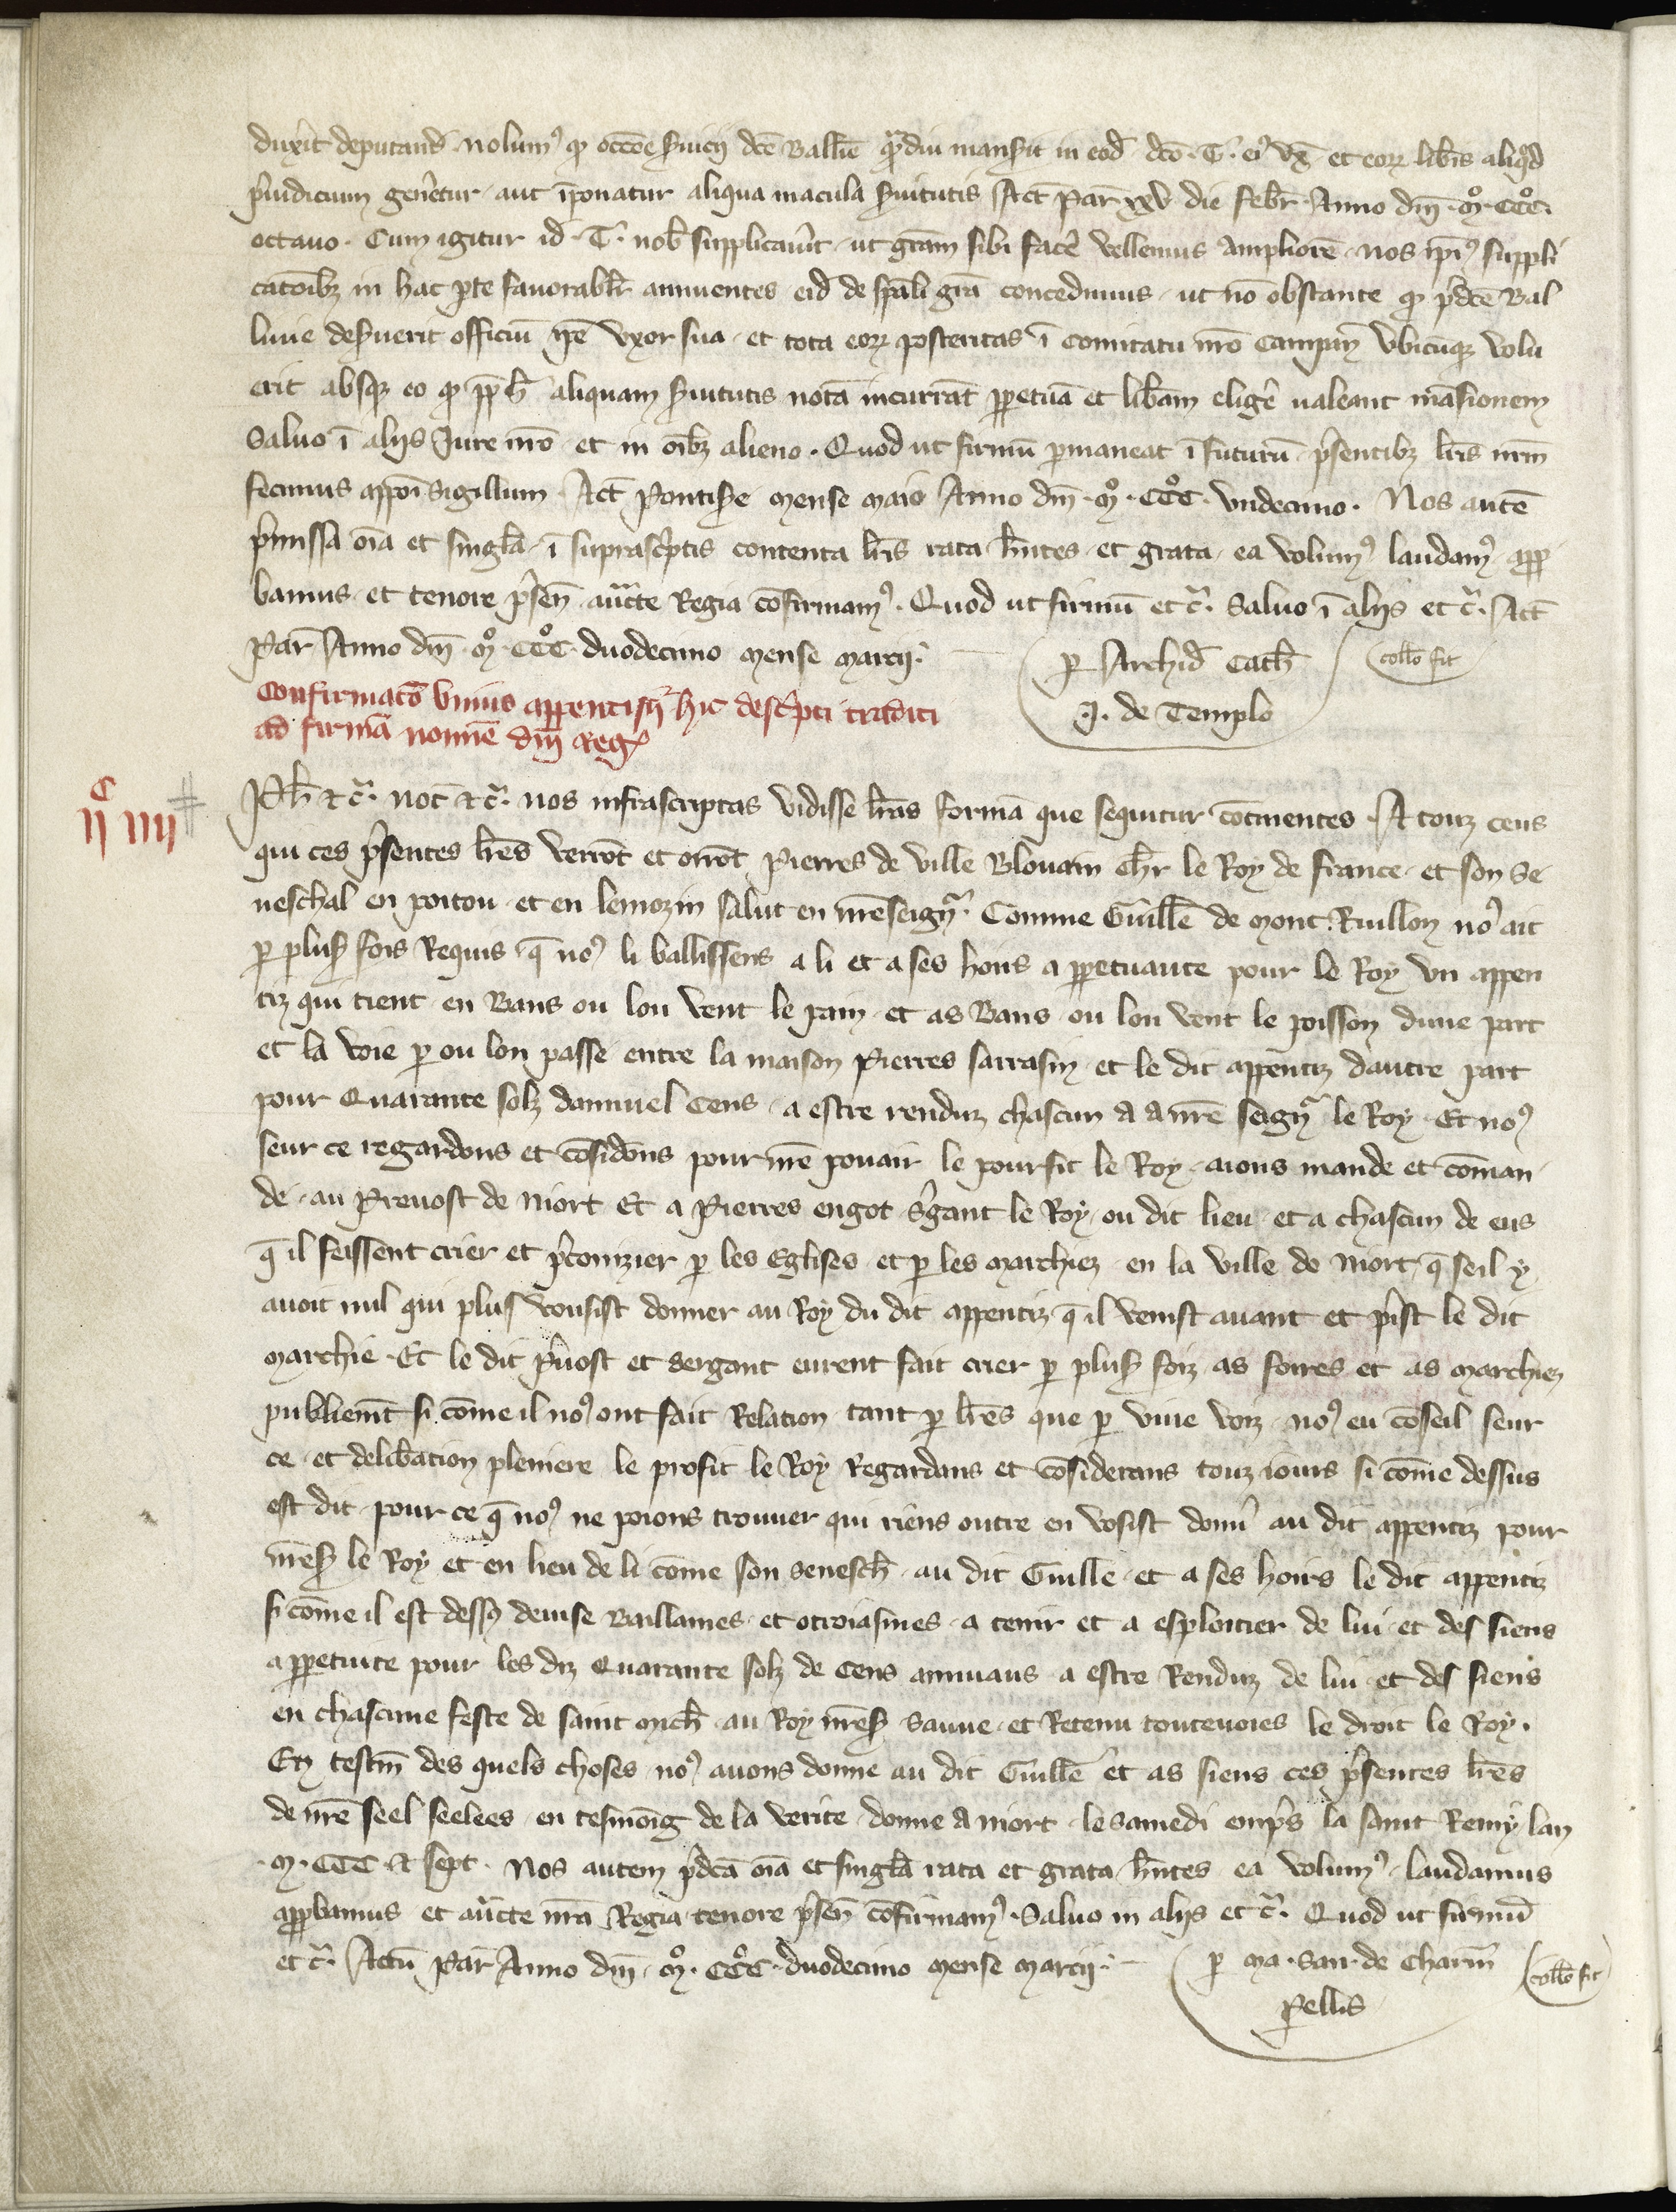 duxit deputand nolumꝰ qđ occōe ẜuicij dc̄e Ballīe qᵃmdiu mansit in eod dc̄o T. ei vx̄ et eoꝝ lib̄is aliqd
p̄iudicium gen̄etur aut īponatur aliqua macula ẜuitutis Act̄ Par̄ xxv die febr̄ Anno dn̄i mº CCCº
octauo. Cum igitur id T. nob̄ supplicauit ut grām sibi fac̄e vellemus ampliorē nos ip̄iꝰ suppli
catōibꝫ in hac ꝑte fauorabilr̄ annuentes eid de sp̄ali grā concedimus ut nō obstante qđ p̄dc̄e Bal
liuie deẜuerit officiū ip̄e vxor sua et tota eoꝝ posteritas ī comitatu nr̄o Campañ vbicūqꝫ volu
erit absqꝫ eo qđ ꝓpt̄ h̄ aliquam ẜuitutis notā incurrāt ꝑpetuā et lib̄am eliḡe ualeant māsionem
Saluo ī alijs Iure nr̄o et in oīb alieno. Quod ut firmū ꝑmaneat ī futurū p̄sentibꝫ lr̄is nr̄m
fecimus appōi Sigillum Act̄ Pontiẜe mense maio Anno dn̄i mº CCCº vndecimo. Nos autē
p̄missa oīa et singl̄a ī suprasc̄ptis contenta lr̄is rata hn̄tes et grata ea volumꝰ laudamꝰ apꝓ
bamus et tenore p̄señ auct̄te Regia cōfirmamꝰ. Quod ut firmū etc̄. Saluo ī alijs etc̄. Act̄
Par̄ Anno dn̄i mº CCCº duodecimo mense marcij. ꝑ Archid Cath̄ coll̄o fit
J. de Templo
Confirmatō vnius appenticij hic desc̄pti traditi
ad firmā nomīe dn̄i Reg
ijᶜ iiij
Ph̄ etc̄. not̄ etc̄. nos infrascriptas vidisse lr̄as formā que sequitur cōtinentes A touz ceus
qui ces p̄sentes lr̄es verrōt et orrōt Pierres de ville Blouain chr̄ le Roy de france et son Se
neschal en poitou et en lemozin salut en nr̄e seignʳ. Comme Guill̄e de mont Ruillon noꝰ ait
ꝑ plusꝭ fois Requis q̄ noꝰ li baillissens a li et a ses hoirs a ꝑpetuaute pour le Roy vn appen
tiz qui tient en Bans ou lon vent le pain et as Bans ou lon vent le poisson dune part
et la voie ꝑ ou lon passe entre la maison Pierres sarrasin et le dit appentiz dautre part
pour Quarante solz dannuel Cens a estre renduz chascun a a nr̄e seignʳ le Roy Et noꝰ
seur ce regardōns et cōsidōns pour nr̄e pouair le pourfit le Roy aions mande et cōman
de au Preuost de niort Et a Pierres engot s̄gant le Roy ou dit lieu et a chascun de eus
q̄ il feissent crier et p̄conizier ꝑ les Eglises et ꝑ les marchiez en la ville de niort q̄ seil y
auoit nul qui plus vousist donner au Roy du dit appentiz q̄ il venist auant et p̄ist le dit
marchie Et le dit p̄uost et sergant eurent fait crier ꝑ plusꝭ foiz as foires et as marchiez
publiemt̄ si cōme il noꝰ ont fait Relation tant ꝑ lr̄es que ꝑ viue voiz noꝰ eu cōseil seur
ce et delib̄ation pleniere le profit le Roy Regardans et cōsiderans touz iours si cōme dessus
est dit pour ce q̄ noꝰ ne poions trouuer qui riens outre en vosist donn̄ au dit appentiz pour
nr̄es le Roy et en lieu de li cōme son senesch̄ au dit Guill̄e et a ses hoirs le dit appentiz
si cōme il est dessꝰ deuise Baillames et otroiasmes a tenir et a esploitier de lui et des siens
a ꝑpetuite pour les diz Quarante solz de Cens annuaus a estre Renduz de lui et des siens
en chascune feste de saint mich̄ au Roy nr̄es Sauue et Retenu touteuoies le droit le Roy.
En testm̄ des quels choses noꝰ auons donne au dit Guill̄e et as siens ces p̄sentes lr̄es
de nr̄e seel seelees en tesmōig de la verite donne a niort le samedi emp̄s la saint Remy lan
m. CCC et sept. Nos autem p̄dc̄a oīa et singl̄a rata et grata hn̄tes ea volumꝰ laudamus
apꝓbamus et auct̄te nr̄a Regia tenore p̄señ cōfirmamꝰ. Saluo in alijs etc̄. Quod ut firmū
etc̄. Actū Par̄ Anno dn̄i mº CCCº duodecimo mense marcij. ꝑ ma. san. de Charm̄ coll̄o fit
Pellis